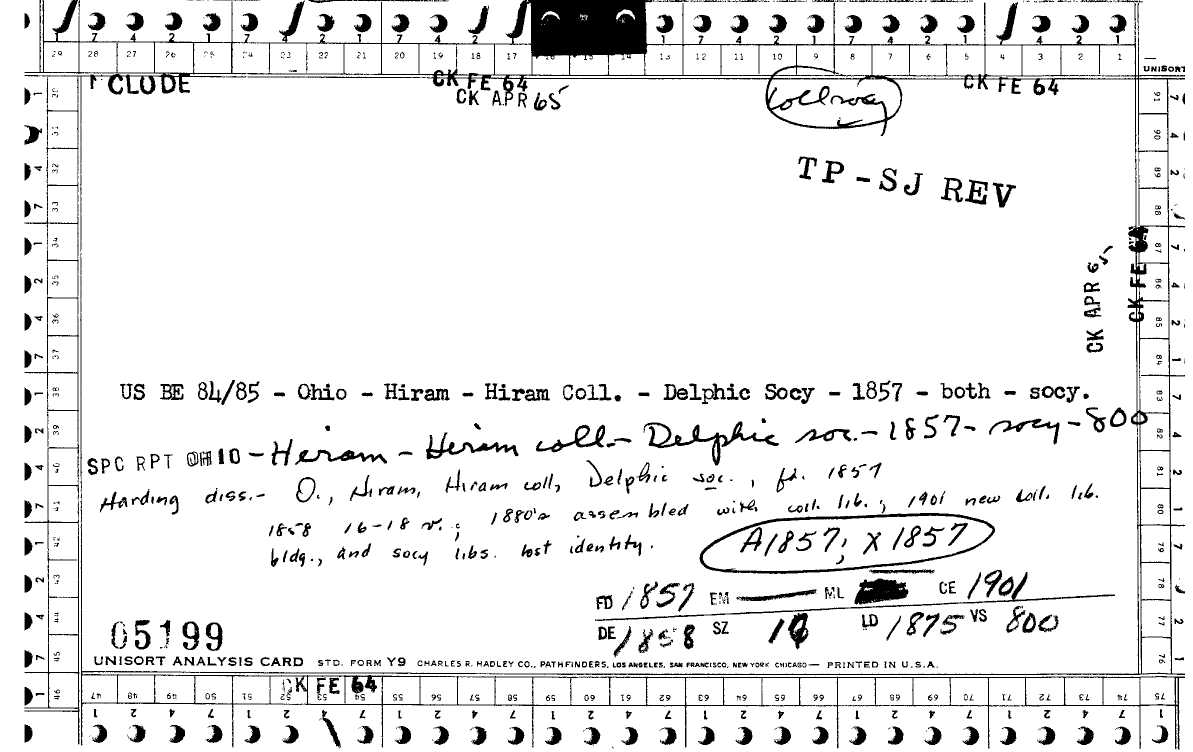 7 4 2 1 7 4 2 1 7 4 2 1 7 4 2 1 7 4 2 1 7 4 2 1
29 28 27 26 25 24 23 22 21 20 19 18 17 16 15 14 13 12 11 10 9 8 7 6 5 4 3 2 1
UNISORT
CLUDE
CK FE 64
CK APR 65
CK FE 64
TP-SJ REV
CK APR 65
CK FE 64
US BE 84/85 - Ohio - Hiram - Hiram Coll. - Delphic Socy - 1857 - both - socy.
SPC RPT OHIO - Hiram - Hiram coll - Delphic soc. - 1857 - socy - 800
Harding diss. - O., Hiram, Hiram coll, Delphic soc., fd. 1857
1858 16-18 v.; 1880's assembled with coll. lib.; 1901 new coll. lib.
bldg., and socy libs. lost identity.
A1857; X1857
FD 1857 EM ML CE 1901
DE 1858 SZ 16 LD 1875 VS 800
05199
UNISORT ANALYSIS CARD STD. FORM Y9 CHARLES R. HADLEY CO., PATHFINDERS, LOS ANGELES, SAN FRANCISCO, NEW YORK CHICAGO — PRINTED IN U.S.A.
CK FE 64
47 48 49 50 51 52 53 54 55 56 57 58 59 60 61 62 63 64 65 66 67 68 69 70 71 72 73 74 75